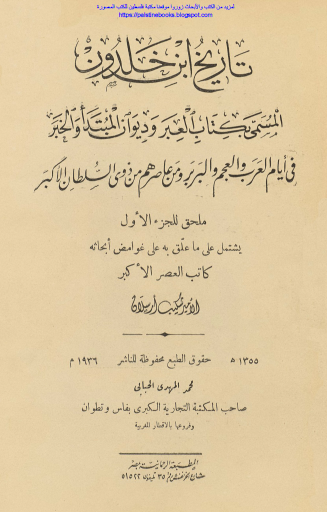 لمزيد من الكتب والأبحاث زوروا موقعنا مكتبة فلسطين للكتب المصورة
https://palstinebooks.blogspot.com
تاريخ ابن خلدون
المسمى بكتاب العبر وديوان المبتدأ والخبر
في أيام العرب والعجم والبربر ومن عاصرهم من ذوي السلطان الأكبر
ملحق للجزء الأول
يشتمل على ما علّق به على غوامض أبحاثه
كاتب العصر الأكبر
الأمير شكيب أرسلان
١٣٥٥ ه حقوق الطبع محفوظة للناشر ١٩٣٦ م
محمد المهدي الحبابي
صاحب المكتبة التجارية الكبرى بفاس وتطوان
وفروعها بالأقطار المغربية
المطبعة الرحمانية بمصر
شارع الخرنفش رقم ٣٥ تليفون ٥١٥٢٢